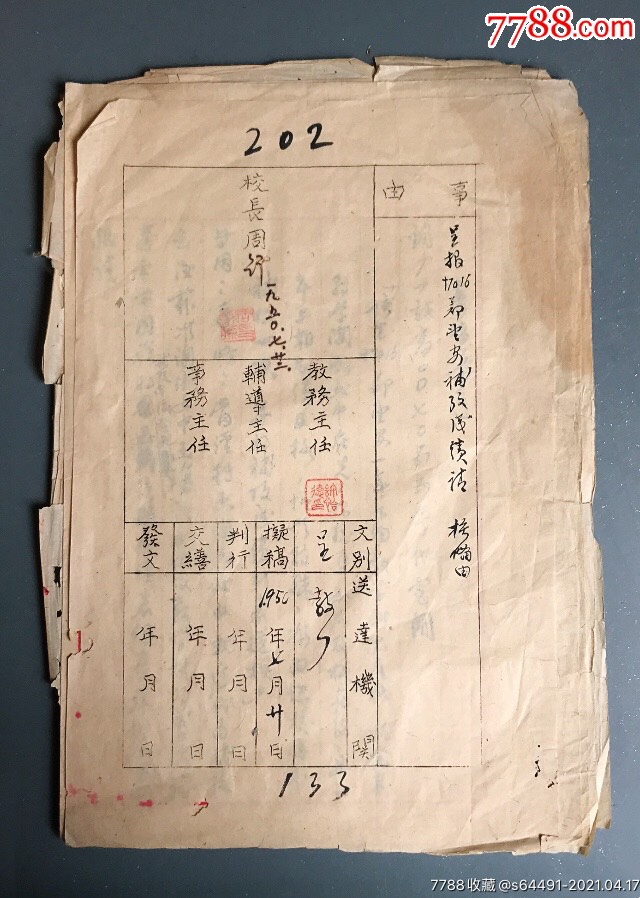 7788.com
202
事由
呈报
补考成绩请 核备由
校長周
一九五〇.七.廿二
教務主任
輔導主任
事務主任
文別
呈
擬稿
判行
交繕
發文
送達機関
1950年七月廿日
年月日
年月日
年月日
133
7788收藏@s64491-2021.04.17